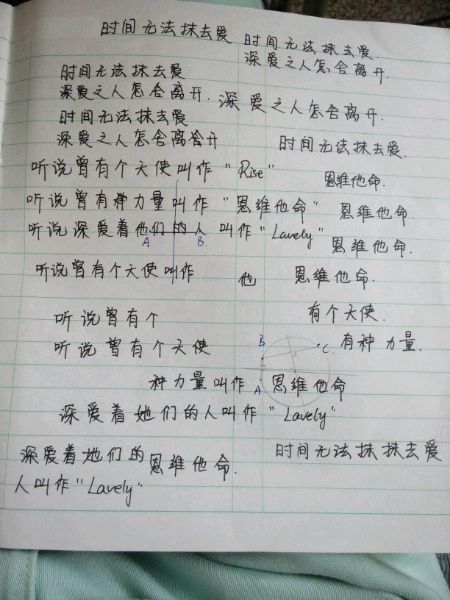 时间无法抹去爱
时间无法抹去爱
深爱之人怎舍离开
时间无法抹去爱
深爱之人怎舍离开.
深爱之人怎舍离开.
时间无法抹去爱
深爱之人怎舍离舍开
时间无法抹去爱.
听说曾有个天使叫作“Rise”
恩维他命.
听说曾有种力量叫作“恩维他命”
恩维他命.
听说深爱着他们的人叫作“Lavely”
恩维他命.
A B
听说曾有个天使叫作
他
恩维他命.
听说曾有个
有个天使.
听说曾有个天使
B
C.
有种力量.
种力量叫作
A
恩维他命
深爱着她们的人叫作“Lavely”
深爱着她们的
恩维他命.
时间无法抹抹去爱
人叫作“Lavely”